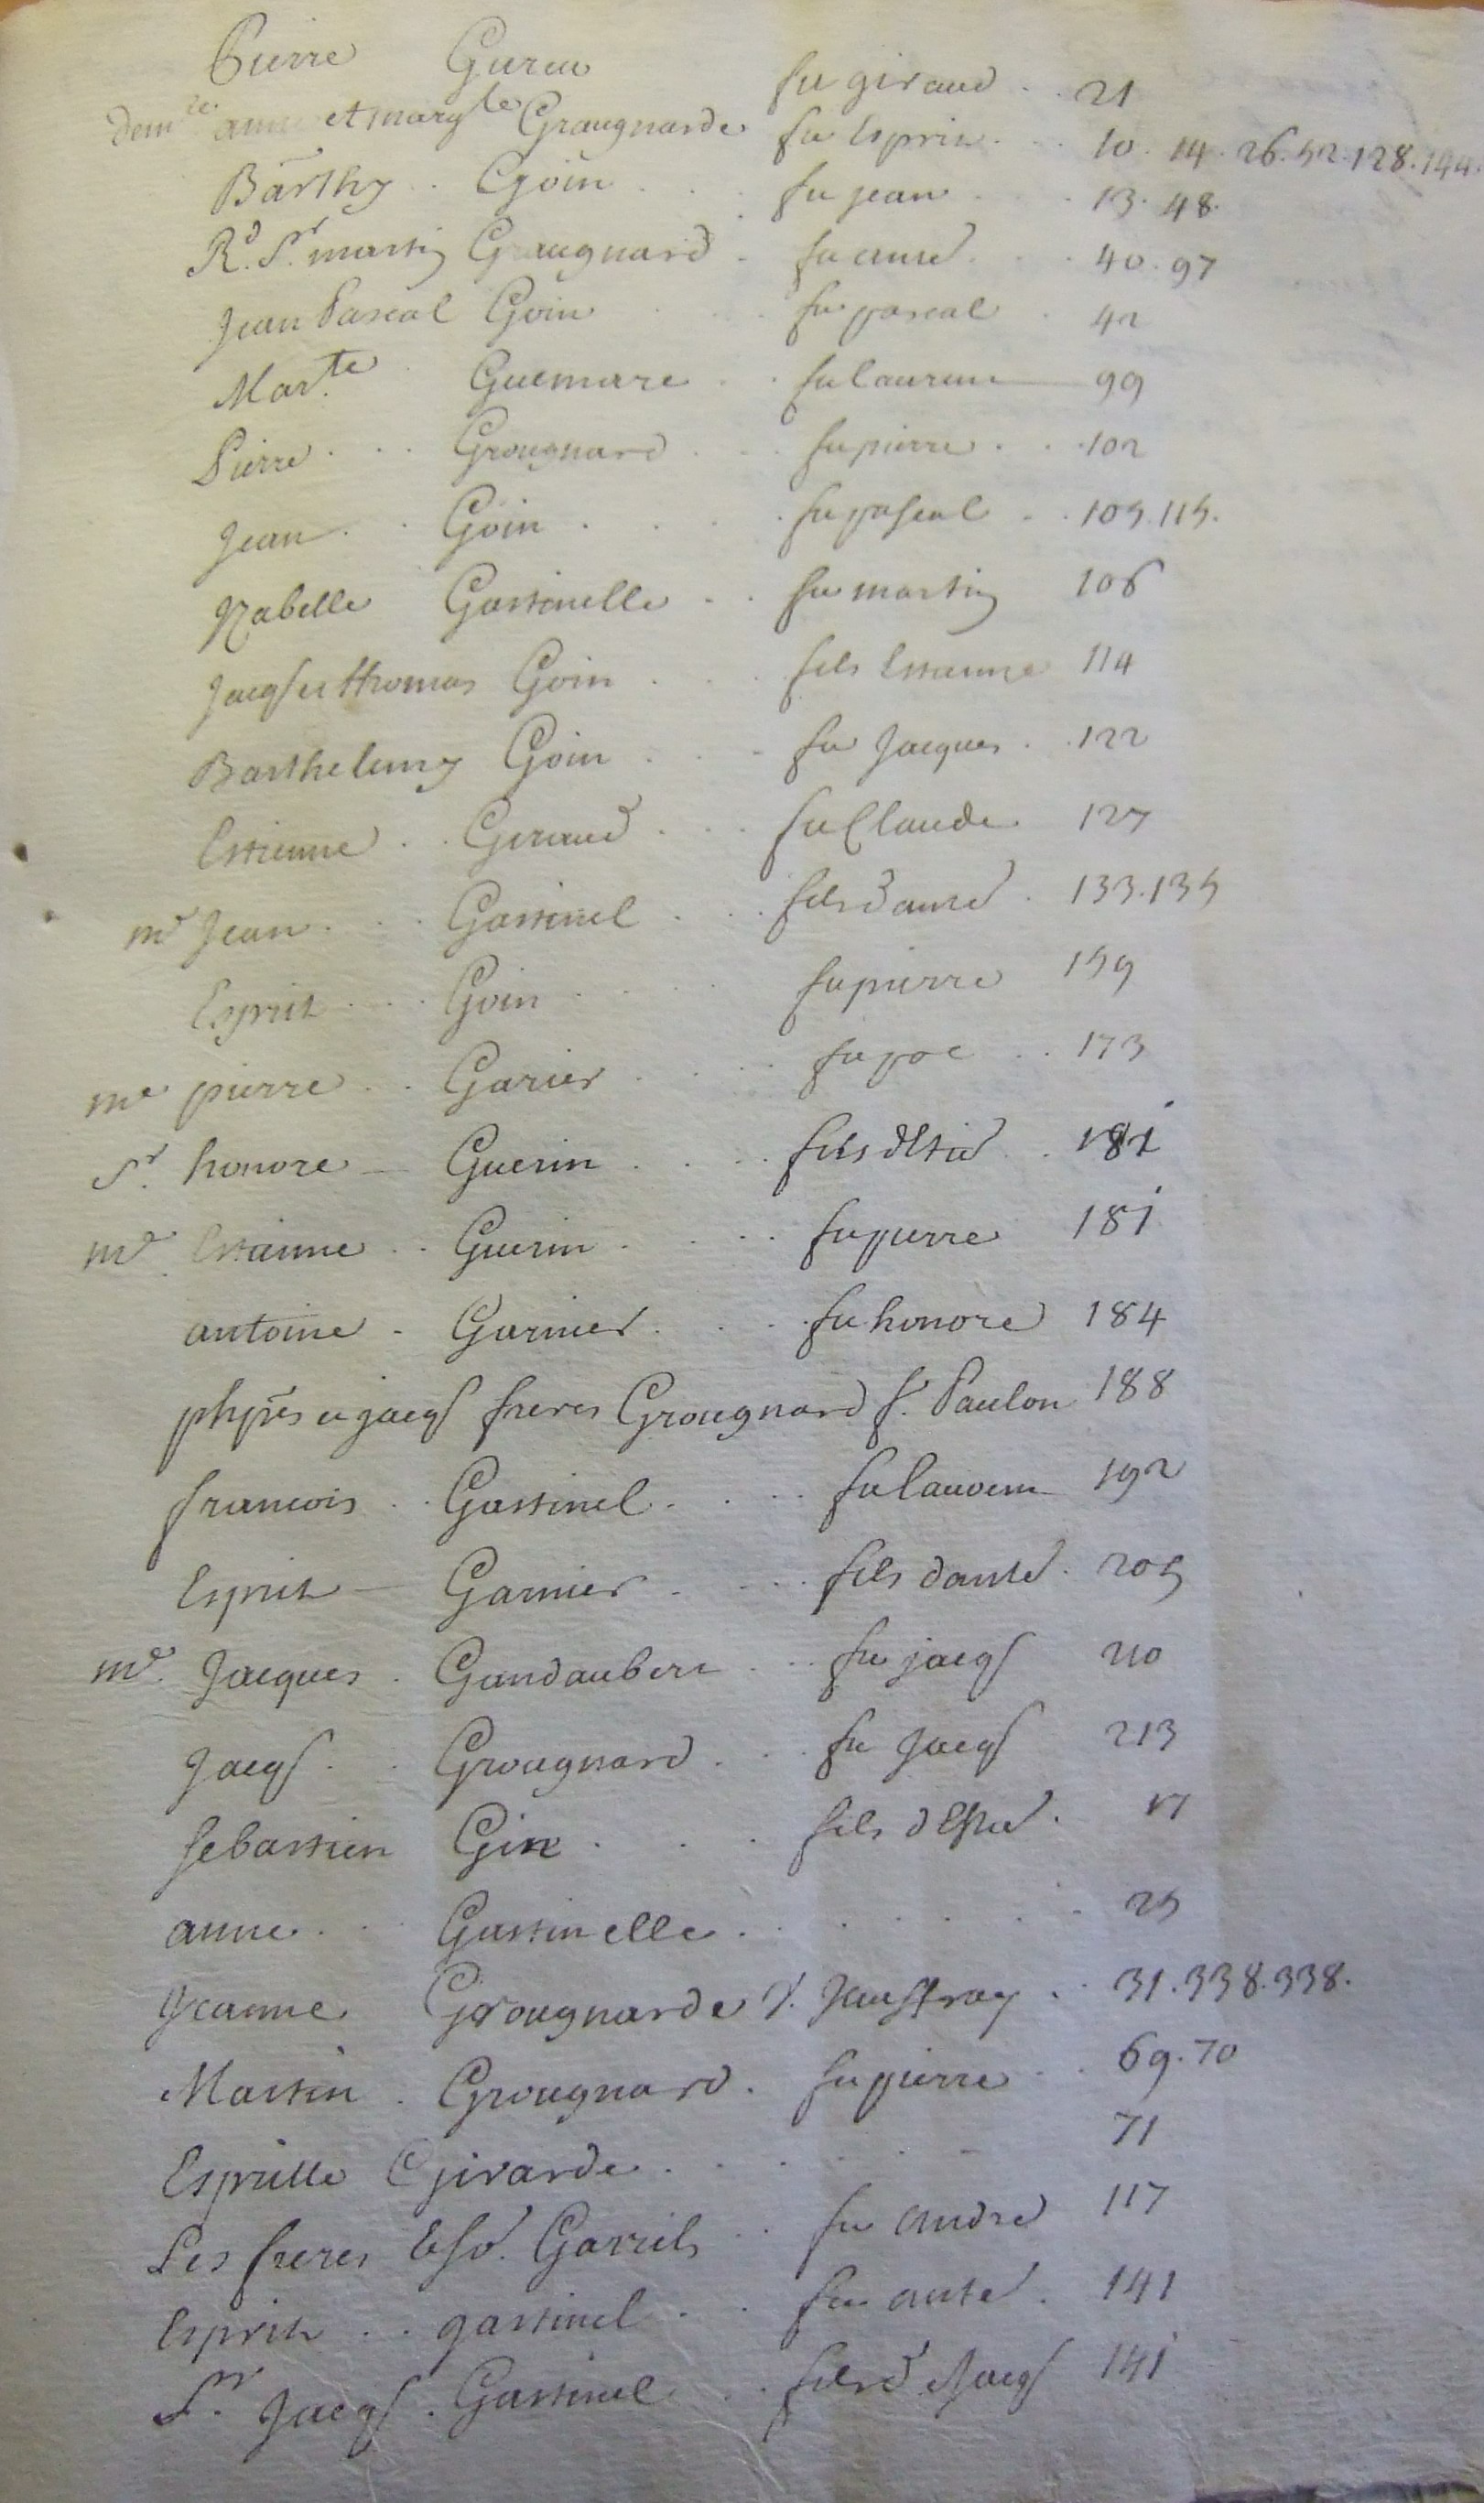 Pierre Gureu fu giraud . . 21
dem.lle anne et marg.te Graugnarde fu Esprit . . 10 . 14 . 26 . 52 . 128 . 144.
Barthy . Goin . . fu jean . . 13 . 48.
R.d Sr. martin Graugnard . fu anted . . 40 . 97
Jean Pascal Goin . . fu pascal . 42
Mar.te Guemare . . fu laurent 99
Pierre . . . Grougnard . . fu pierre . . 102
Jean . . Goin . . . . fu pascal . . 105 . 115.
Yzabelle Gastinelle . . fu martin 106
Jacqs et thomas Goin . . fils Estienne 114
Barthelemy Goin . . fu Jacques . . 122
Estienne . . Giraud . . . fu Claude 127
me Jean . . . Gastinel . . . fils d'anted . 133 . 135
Esprit . . . Goin . . . . fu pierre 159
me pierre . . Garier . . . . fu poe . . 173
Sr. honore – Guerin . . . . fils d'Etied . . 181
me Estienne . . Guerin . . . . fu pierre 181
antoine . Garnier . . . fu honore 184
phpes et jacqs freres Grougnard f. Paulon 188
francois . . Gastinel . . . . fu lauvens 192
Esprit – Garnier . . . fils danted . 205
me. Jacques . Gandaubert . . . fu jacqs 210
Jacqs . . Grougnard . . . fu Jacqs 213
sebastien Gin . . . fils d'Estied . 17
anne . . Gastinelle . . . . . . 25
Jeanne Grougnarde Jauffroy . . 31 . 338 . 338.
Martin . Grougnard . fu pierre . . 69 . 70
Espritte Girarde . . . . 71
Les freres Garriels . . fu andre 117
Esprit . . gastinel . . fu anted . 141
Sr. Jacqs . Gastinel . . fils d Jacqs 141